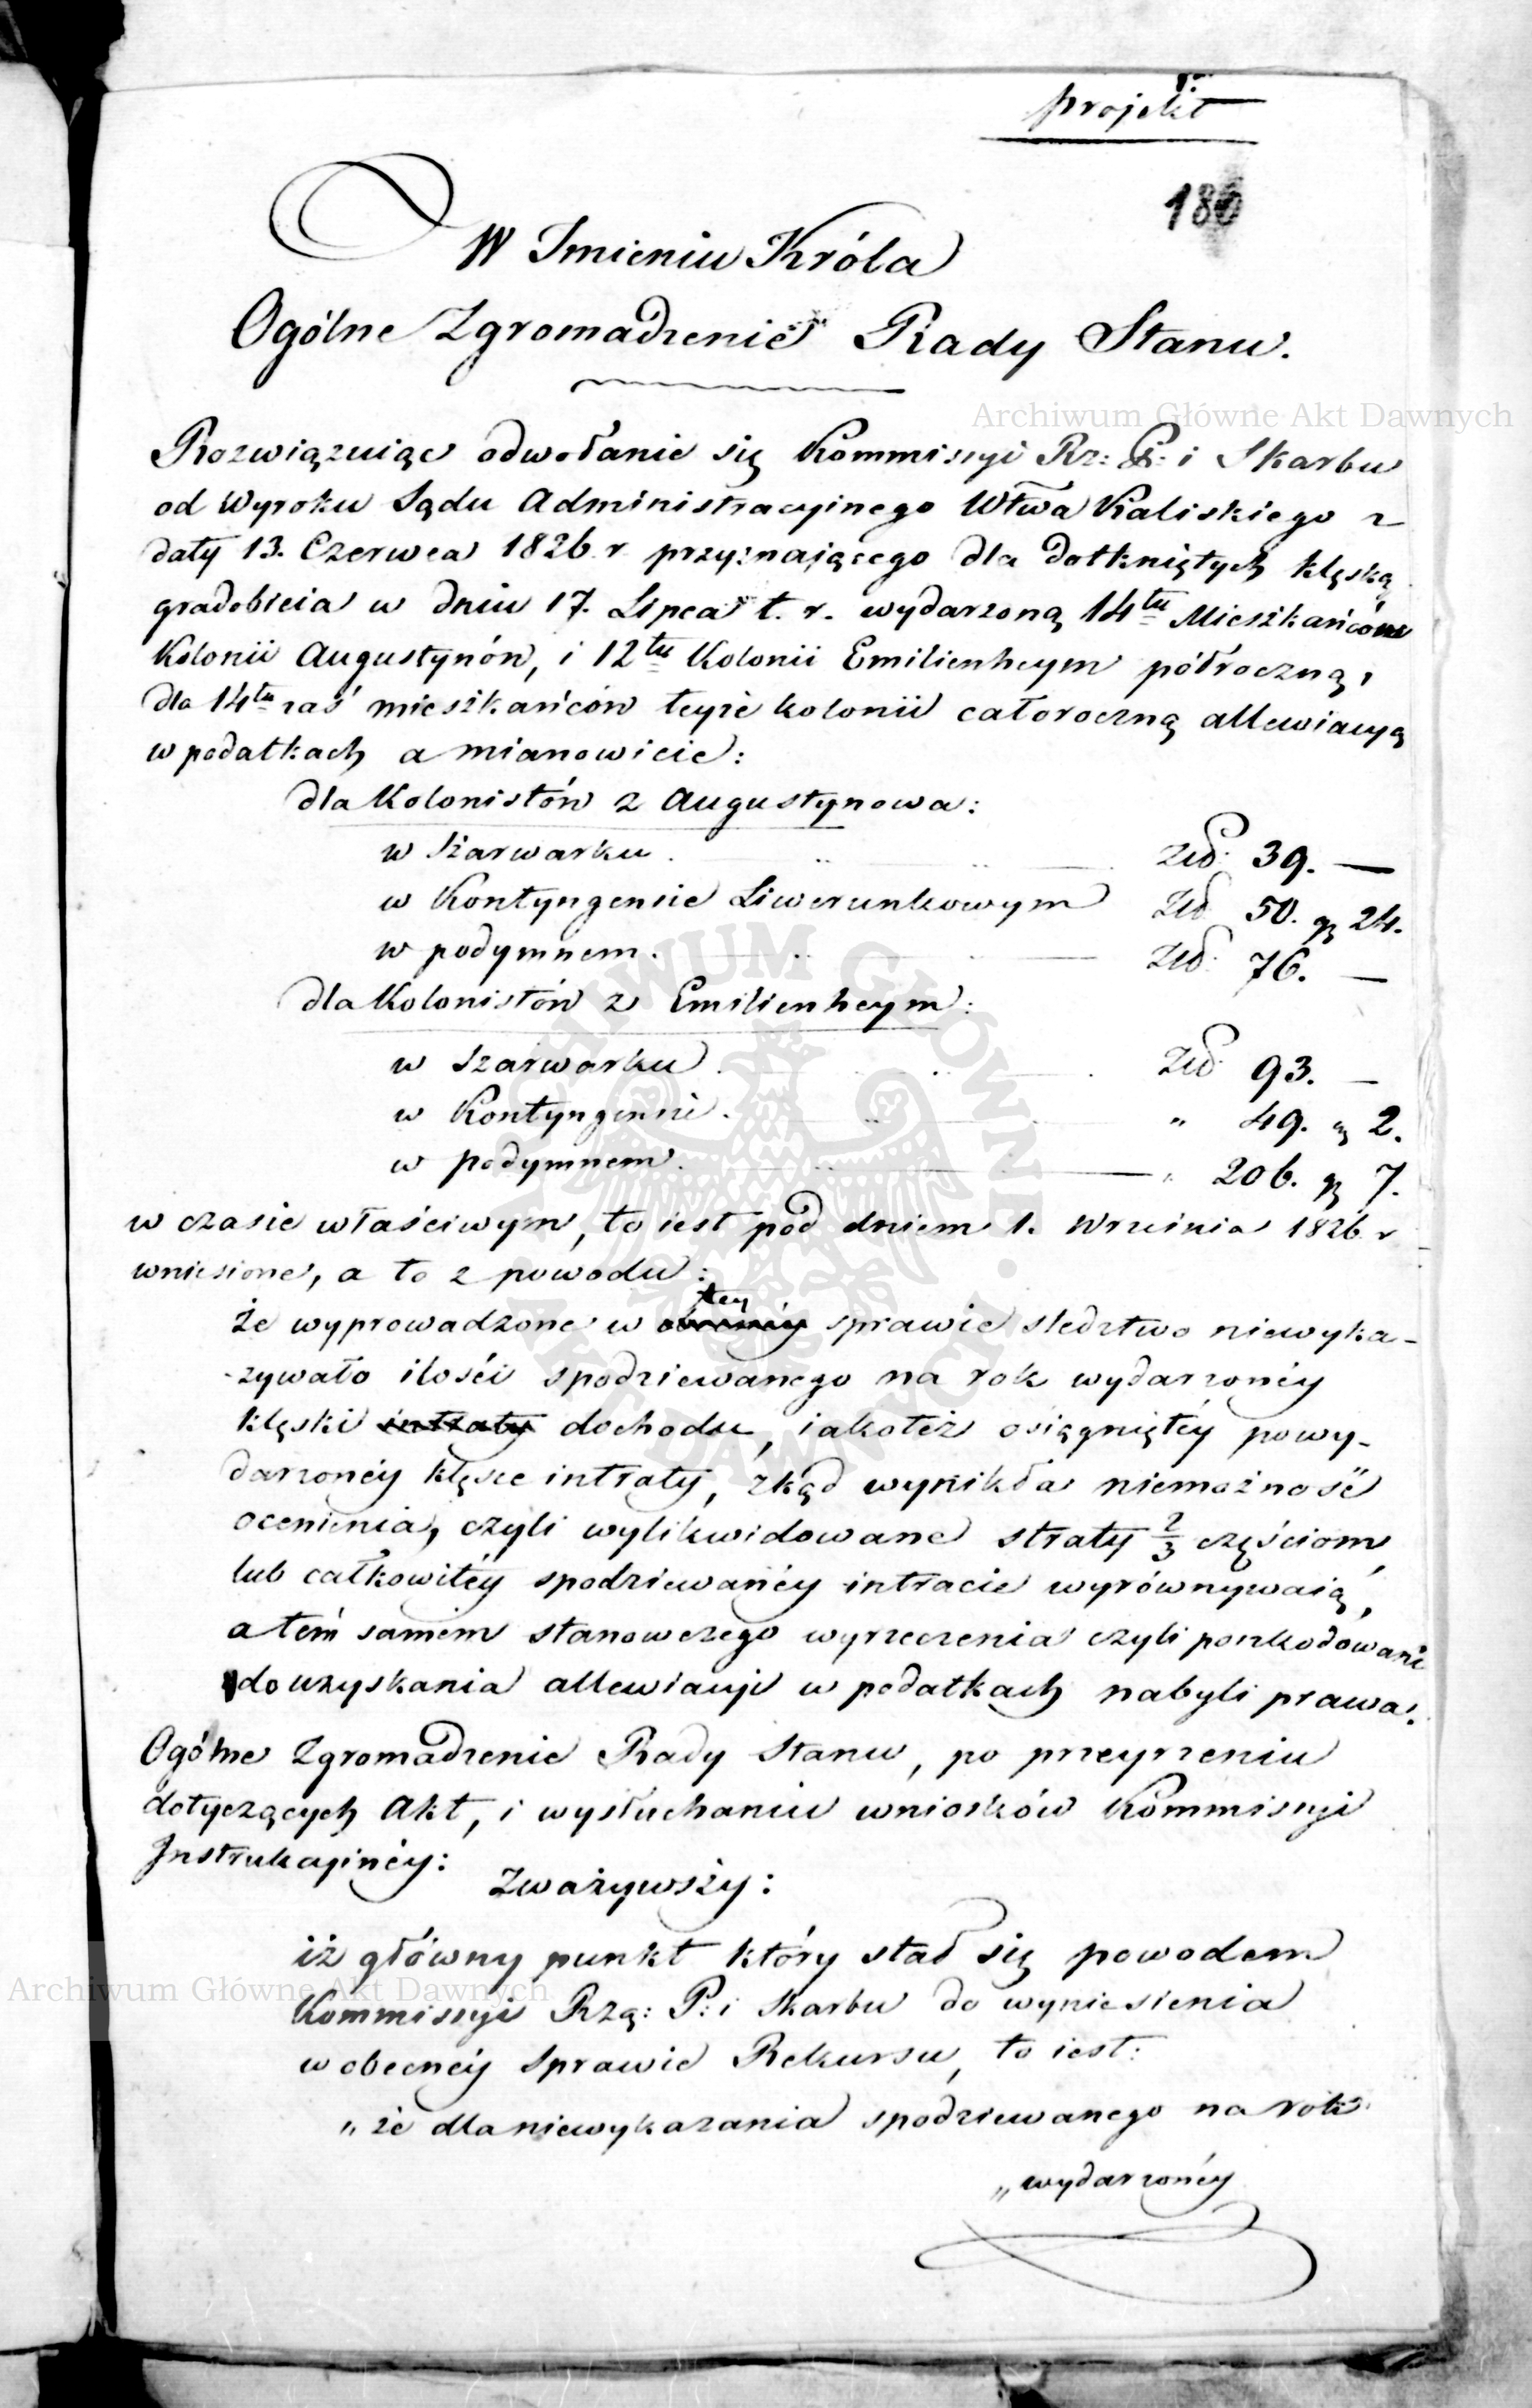 projekt
186
W Imieniu Króla
Ogólne Zgromadzenie Rady Stanu.
Archiwum Główne Akt Dawnych
Rozwiązuiąc odwołanie się Kommissyi Rz: P: i Skarbu
od Wyroku Sądu Administracyinego Wtwa Kaliskiego z
daty 13. Czerwca 1826 r przyznaiącego dla dotkniętych klęską
gradobicia w dniu 17. Lipca t. r. wydarzoną 14tu Mieszkańców
Kolonii Augustynów, i 12tu Kolonii Emilienheym półroczną,
dla 14tu zaś mieszkańców teyże kolonii całoroczną allewiacyą
w podatkach a mianowicie:
dla Kolonistów z Augustynowa:
w Szarwarku . złd: 39. —
w Kontyngensie Liwerunkowym złd 50. gr 24.
w podymnem. złd: 76. —
dla Kolonistów z Emilienheym:
w Szarwarku . złd: 93. —
w Kontyngensie . " 49. gr 2.
w podymnem. " 206. gr 7.
w czasie właściwym, to iest pod dniem 1. Września 1826 r
wniesione, a to z powodu:
tey
że wyprowadzone w obecnéy sprawie sledztwo niewyka-
-zywało ilości spodziewanego na rok wydarzonéy
klęski intraty dochodu, iakoteż osiągniętéy powy-
darzonéy klęsce intraty, zkąd wynikła niemożność
ocenienia, czyli wylikwidowane straty 2/3 częściom
lub całkowitéy spodziewanéy intracie wyrównywaią,
a tém samem stanowczego wyrzeczenia czyli poszkodowani
do uzyskania allewiacyi w podatkach nabyli prawa.
Ogólne Zgromadzenie Rady Stanu, po przeyrzeniu
dotyczących Akt, i wysłuchaniu wniosków Kommissyi
Instrukcyinéy:
Zważywszy:
iż główny punkt który stał się powodem
Archiwum Główne Akt Dawnych
Kommissyi Rzą: P: i Skarbu do wyniesienia
w obecnéy Sprawie Rekursu, to iest:
„że dla niewykazania spodziewanego na rok
„wydarzonéy
ARCHIWUM GŁÓWNE AKT DAWNYCH